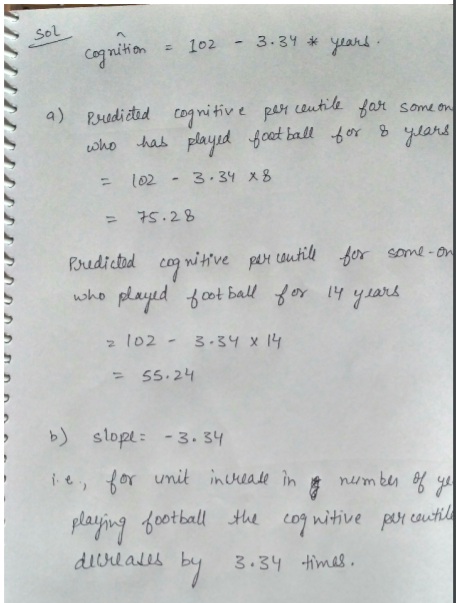 Sol
Cognition^ = 102 - 3.34 * years.
a) Predicted cognitive percentile for someon
who has played football for 8 years
= 102 - 3.34 x 8
= 75.28
Predicted cognitive percentile for some-on
who played football for 14 years
= 102 - 3.34 x 14
= 55.24
b) slope: -3.34
i.e., for unit increase in number of ye
playing football the cognitive percentile
decreases by 3.34 times.